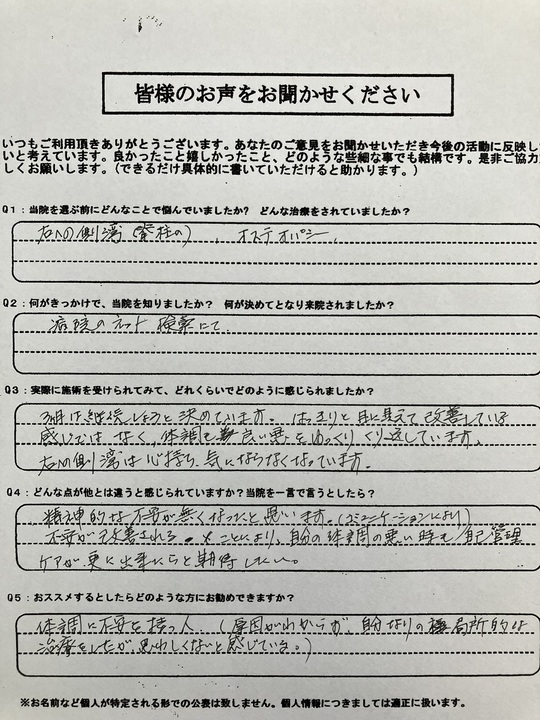 皆様のお声をお聞かせください
いつもご利用頂きありがとうございます。あなたのご意見をお聞かせいただき今後の活動に反映し
いと考えています。良かったこと嬉しかったこと、どのような些細な事でも結構です。是非ご協力
しくお願いします。(できるだけ具体的に書いていただけると助かります。)
Q1:当院を選ぶ前にどんなことで悩んでいましたか? どんな治療をされていましたか?
右への側湾(脊柱の)、オステオパシー、
Q2:何がきっかけで、当院を知りましたか? 何が決めてとなり来院されましたか?
病院のネット検索にて
Q3:実際に施術を受けられてみて、どれくらいでどのように感じられましたか?
3ヶ月は継続しようと決めています。はっきりと目に見えて改善している
感じではなく、体調も良い悪いをゆっくりくり返しています。
右への側湾は心持ち、気にならなくなっています。
Q4:どんな点が他とは違うと感じられていますか?当院を一言で言うとしたら?
精神的な不安が無くなったと思います。(コミュニケーションにより)
不安が改善されることにより、自分の体調の悪い時も自己管理
ケアが更に出来たらと期待したい。
Q5:おススメするとしたらどのような方にお勧めできますか?
体調に不安を持つ人。(原因がわからず、自分なりの局所的な
治療をしたが、思わしくないと感じている。)
※お名前など個人が特定される形での公表は致しません。個人情報につきましては適正に扱います。